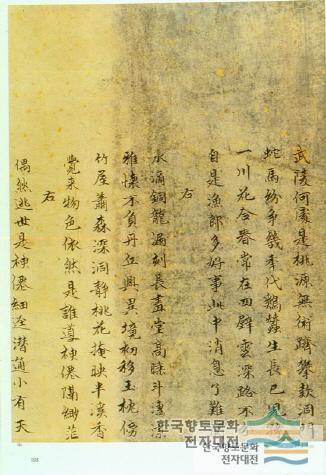 武陵何處是桃源無術躋攀欸洞門
蛇馬紛爭幾年代鷄蟲生長已見
一川花合春常在四壁雲深路不
自是漁郎多好事此中消息了難
右
水滴銅龍漏刻長畫堂高睡斗
雅懷不負丹丘興異境初移玉枕傍
竹屋蕭森深洞靜桃花掩映半溪香
覺來物色依然是誰導神僊隔渺茫
右
偶然逃世是神僊細逕潛通小有天
한국향토문화
전자대전
한국향토문화
전자대전